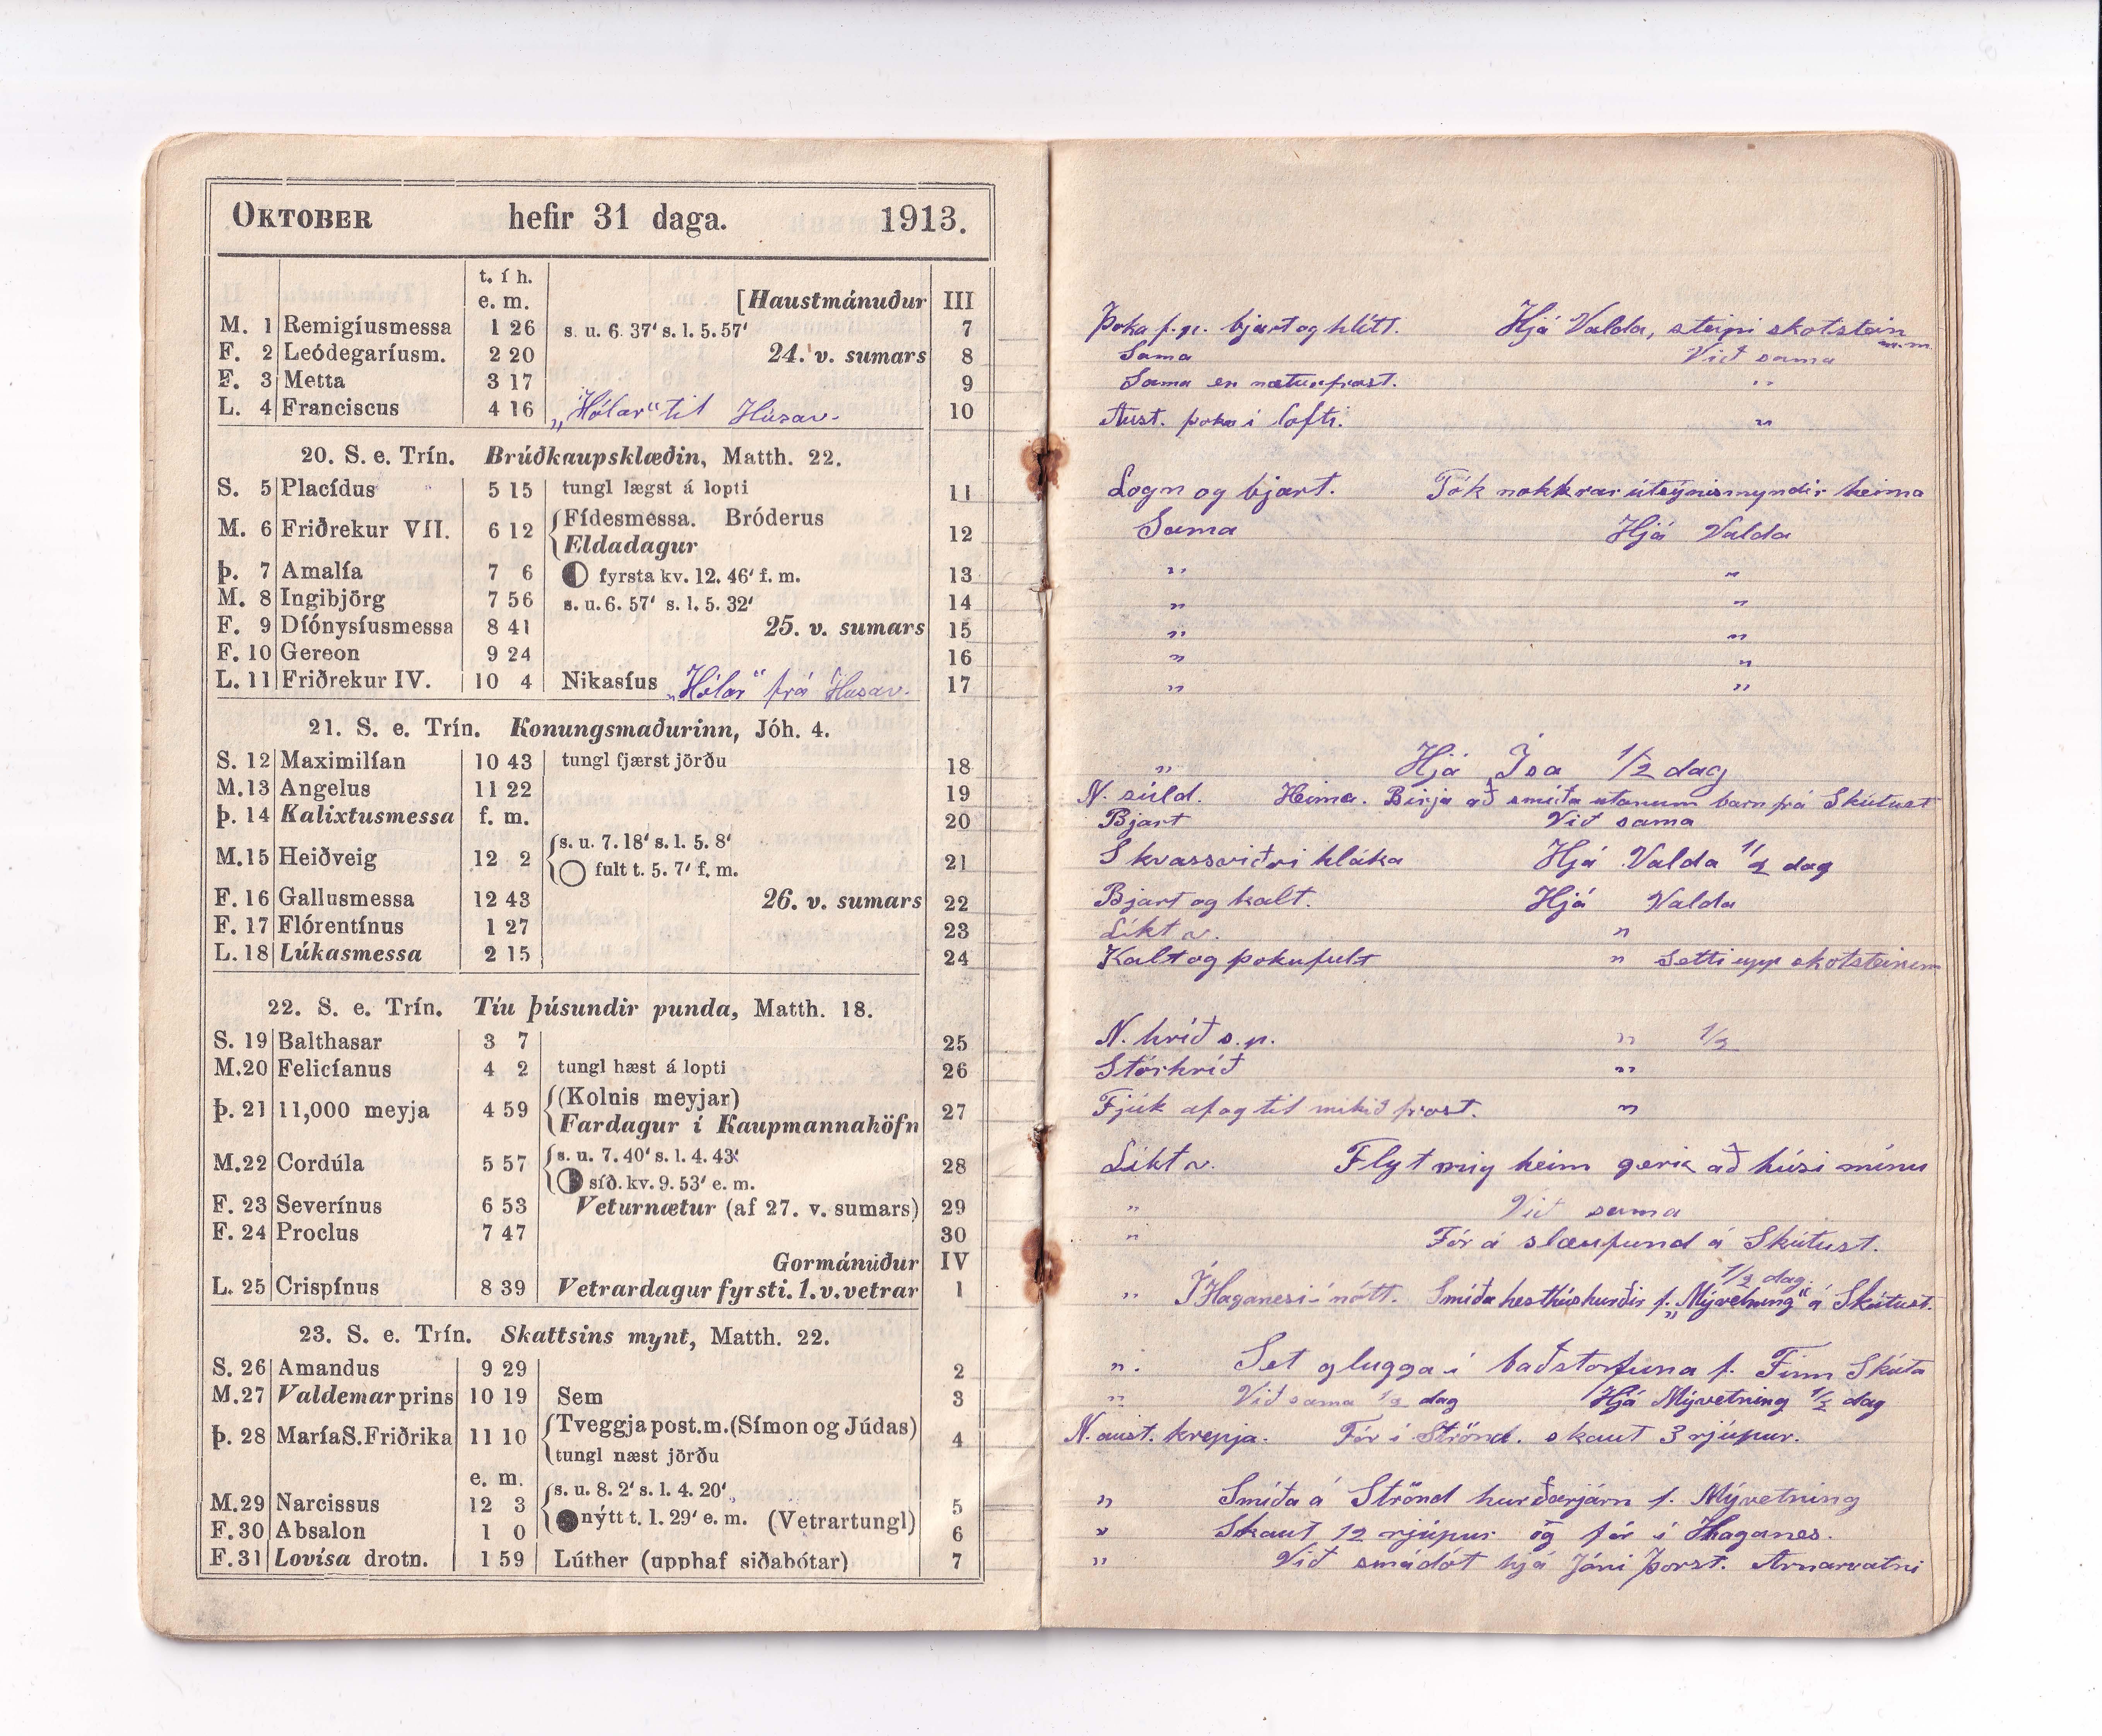 OKTOBER hefir 31 daga. 1913.
t. í h.
e. m. [Haustmánuður III
M. 1 Remigíusmessa 1 26 s. u. 6. 37' s. l. 5. 57' 7
F. 2 Leódegaríusm. 2 20 24. v. sumars 8
F. 3 Metta 3 17 9
L. 4 Franciscus 4 16 „Hólar“ til Húsav. 10
20. S. e. Trín. Brúðkaupsklæðin, Matth. 22.
S. 5 Placídus 5 15 tungl lægst á lopti 11
M. 6 Friðrekur VII. 6 12 Fídesmessa. Bróderus 12
Eldadagur
Þ. 7 Amalía 7 6 fyrsta kv. 12. 46' f. m. 13
M. 8 Ingibjörg 7 56 s. u. 6. 57' s. l. 5. 32' 14
F. 9 Díónysíusmessa 8 41 25. v. sumars 15
F. 10 Gereon 9 24 16
L. 11 Friðrekur IV. 10 4 Nikasíus „Hólar“ frá Húsav. 17
21. S. e. Trín. Konungsmaðurinn, Jóh. 4.
S. 12 Maximilían 10 43 tungl fjærst jörðu 18
M. 13 Angelus 11 22 19
Þ. 14 Kalixtusmessa f. m. 20
M. 15 Heiðveig 12 2 s. u. 7. 18' s. l. 5. 8' 21
fult t. 5. 7' f. m.
F. 16 Gallusmessa 12 43 26. v. sumars 22
F. 17 Flórentínus 1 27 23
L. 18 Lúkasmessa 2 15 24
22. S. e. Trín. Tíu þúsundir punda, Matth. 18.
S. 19 Balthasar 3 7 25
M. 20 Felicíanus 4 2 tungl hæst á lopti 26
Þ. 21 11,000 meyja 4 59 (Kolnis meyjar) 27
Fardagur í Kaupmannahöfn
M. 22 Cordúla 5 57 s. u. 7. 40' s. l. 4. 43' 28
síð. kv. 9. 53' e. m.
F. 23 Severínus 6 53 Veturnætur (af 27. v. sumars) 29
F. 24 Proclus 7 47 30
Gormánuður IV
L. 25 Crispínus 8 39 Vetrardagur fyrsti. 1. v. vetrar 1
23. S. e. Trín. Skattsins mynt, Matth. 22.
S. 26 Amandus 9 29 2
M. 27 Valdemar prins 10 19 Sem 3
Þ. 28 María S. Friðrika 11 10 Tveggja post. m. (Símon og Júdas) 4
tungl næst jörðu
e. m.
M. 29 Narcissus 12 3 s. u. 8. 2' s. l. 4. 20' 5
nýtt t. 1. 29' e. m. (Vetrartungl)
F. 30 Absalon 1 0 6
F. 31 Lovísa drotn. 1 59 Lúther (upphaf siðabótar) 7
Þoka f. p. bjart og hlítt. Hjá Valda, steipi skotstein m. m.
Sama Við sama
Sama en næturfrost. "
Aust. þoka í lofti. "
Logn og bjart. Tók nokkrar útsýnismyndir heima
Sama Hjá Valda
" "
" "
" "
" "
" "
" Hjá Ísa 1/2 dag
N. súld. Heima. Birja að smíða utanum barn frá Skútust
Bjart Við sama
Skvassviðri hláka Hjá Valda 1/2 dag
Bjart og kalt. Hjá Valda
Líkt v. "
Kalt og þokufult " Setti upp skotsteininn
N. hríð s. p. " 1/2
Stórhríð "
Fjúk af og til mikið frost. "
Líkt v. Flyt mig heim geri að húsi mínu
" Við sama
" Fór á slæufund á Skútust.
" Í Haganesi í nótt. Smíða hesthúshurðir f. „Mývetning“ á Skútust. 1/2 dag.
" Set glugga í baðstofuna f. Finn Skúta
" Við sama 1/2 dag Hjá Mývetning 1/2 dag
N. aust. krepja. Fór í Strönd. skaut 3 rjúpur.
" Smíða á Strönd hurðarjárn f. Mývetning
" Skaut 12 rjúpur og fór í Haganes.
" Við smádót hjá Jóni Þorst. Arnarvatni